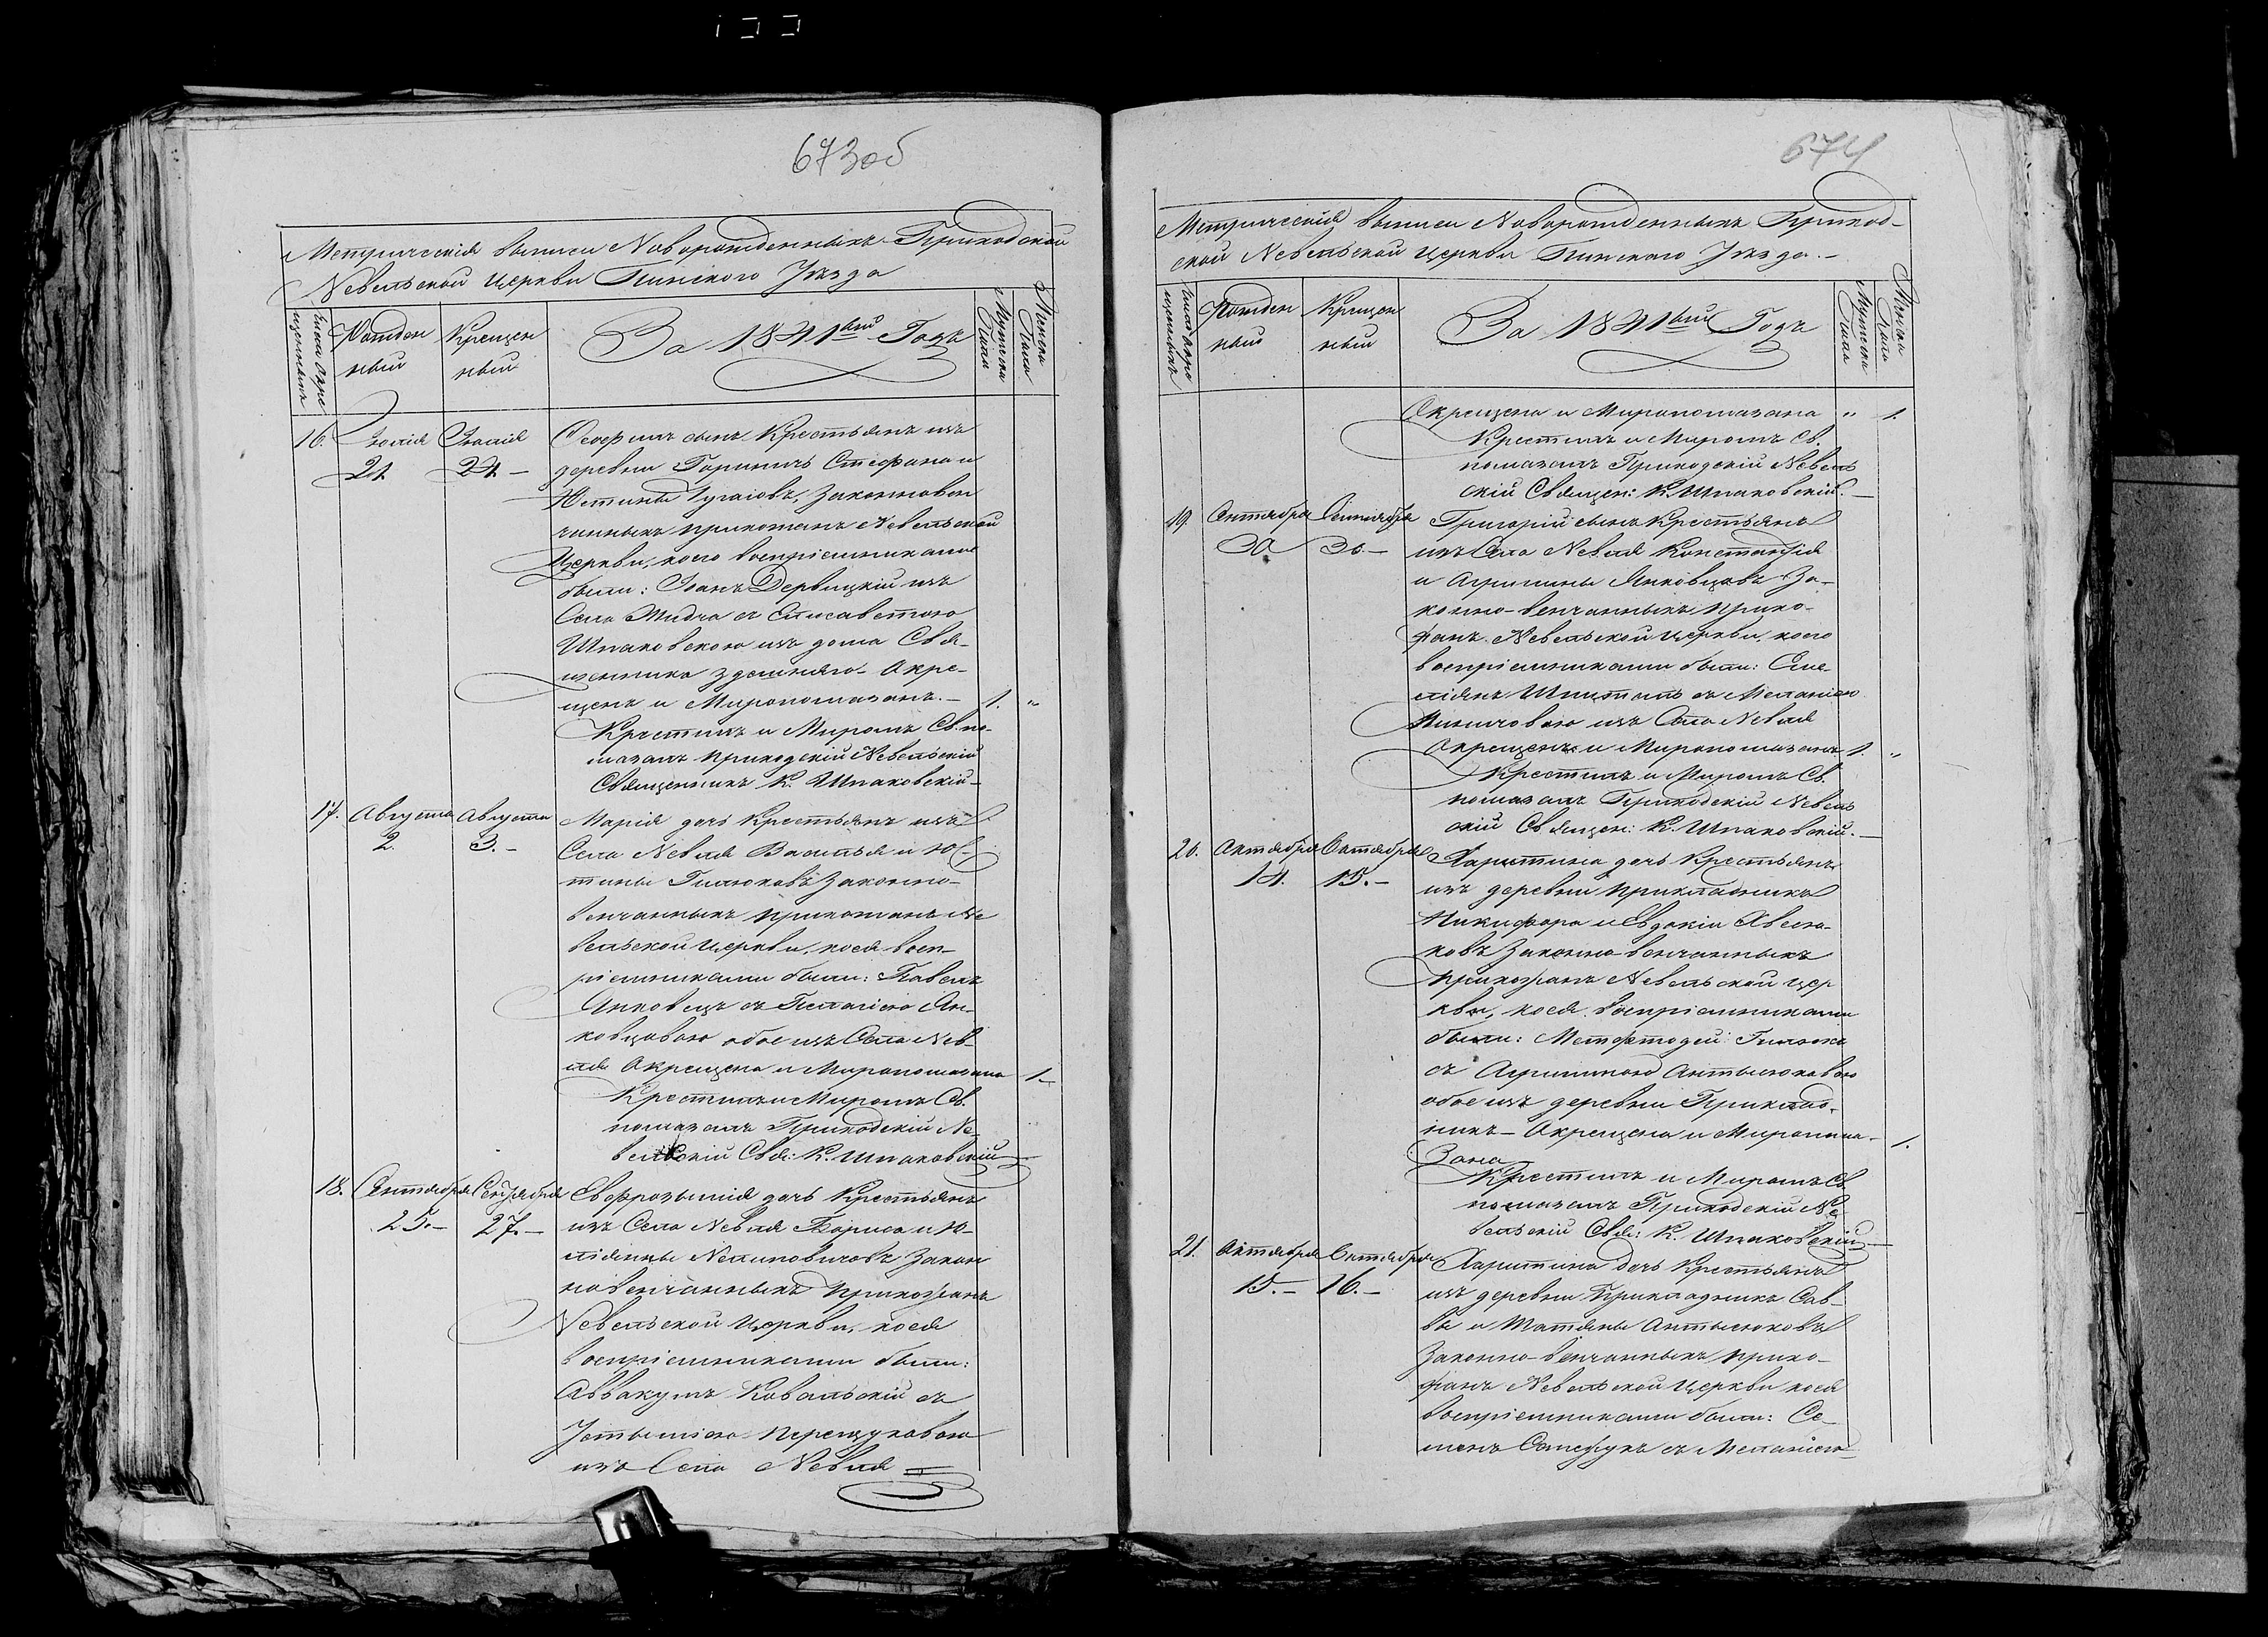 673об
Метрическія выписи Новорожденныхъ Приходской
Невельской Церкви Пинского Уѣзда
Число окре
щенныхъ
Рожден
ный
Крещен
ный
За 1841вый Годъ
Мужеска
Пола
Женска
Пола
16. Іюлія Іюлія Ѳеофилъ сынъ Крестьянъ изъ
24 24 – деревни Гориничъ Стефана и
Юстины законновен
чанныхъ прихожанъ Невельской
Церкви, коего воспріемниками
были: Іоанъ Дервицкій изъ
Села Жидча съ Елисаветою
Шпаковскою изъ дома Свя-
щенника здешняго – Окре-
щенъ и Миропомазанъ. – 1. "
Крестилъ и Миромъ Св. по-
мазалъ приходскій Невельскій
Священникъ К. Шпаковскій –
17. Августа Августа Марія дочь Крестьянъ изъ
2. 3. – Села Невля Василья и Юс-
тины Гилюковъ Законно-
венчанныхъ прихожанъ Не
вельской Церкви, коея восп-
ріемниками были: Павелъ
Янковецъ съ Пелагіею Ян-
ковцовою обое изъ Села Нев-
ля Окрещена и Миропомазана 1–
Крестилъ и Миромъ Св.
помазалъ Приходскій Не-
вельскій Свя: К. Шпаковскій
18. Сентября Сентября Евфрозынія дочь Крестьянъ
25. – 27. – изъ Села Невля Бориса и Ю-
ліянны Нелиповичовъ Закон
новенчанныхъ прихожанъ
Невельской Церкви, коея
воспріемниками были:
Аввакумъ Ковальскій съ
Перещуковою
изъ Села Невля
674
Метрическія выписи Новорожденныхъ Приход-
ской Невельской Церкви Пинского Уѣзда. –
Число окре
щенныхъ
Рожден
ный
Крещен
ный
За 1841вый Годъ
Мужеска
Пола
Женска
Пола
Окрещена и Миропомазана " 1.
Крестилъ и Миромъ Св.
помазалъ Приходскій Невель
скій Священ: К. Шпаковскій. –
19. Сентября Сентября Григорій сынъ Крестьянъ
30 30. – изъ Села Невля Константія
и Агрипины Янковцовъ За-
конно-венчанныхъ прихо-
жанъ Невельской Церкви, коего
воспріемниками были: Еме-
ліянъ Шпиталь съ Меланіею
изъ Села Невля
Окрещенъ и Миропомазанъ 1. "
Крестилъ и Миромъ Св.
помазалъ Приходскій Невель
скій Священ: К. Шпаковскій. –
20. Октября Октября Харитина дочь Крестьянъ
14. 15. – изъ деревни Прикладникъ
Никифора и Евдокіи Хвесю-
ковъ Законно венчанныхъ
прихожанъ Невельской Цер
кви, коея воспріемниками
были: Гилюкъ
съ Агрипиною Антысюковою
обое изъ деревни Приклад-
никъ – Окрещена и Миропома- 1.
зана
Крестилъ и Миромъ Св.
помазалъ Приходскій Не-
вельскій Свя: К. Шпаковскій –
21. Октября Октября Харитина дочь Крестьянъ
15. – 16. – изъ деревни Прикладникъ Сав-
вы и Татяны Антысюковъ
Законно-венчанныхъ прихо-
жанъ Невельской Церкви коея
воспріемниками были: Се-
менъ съ Меланіею